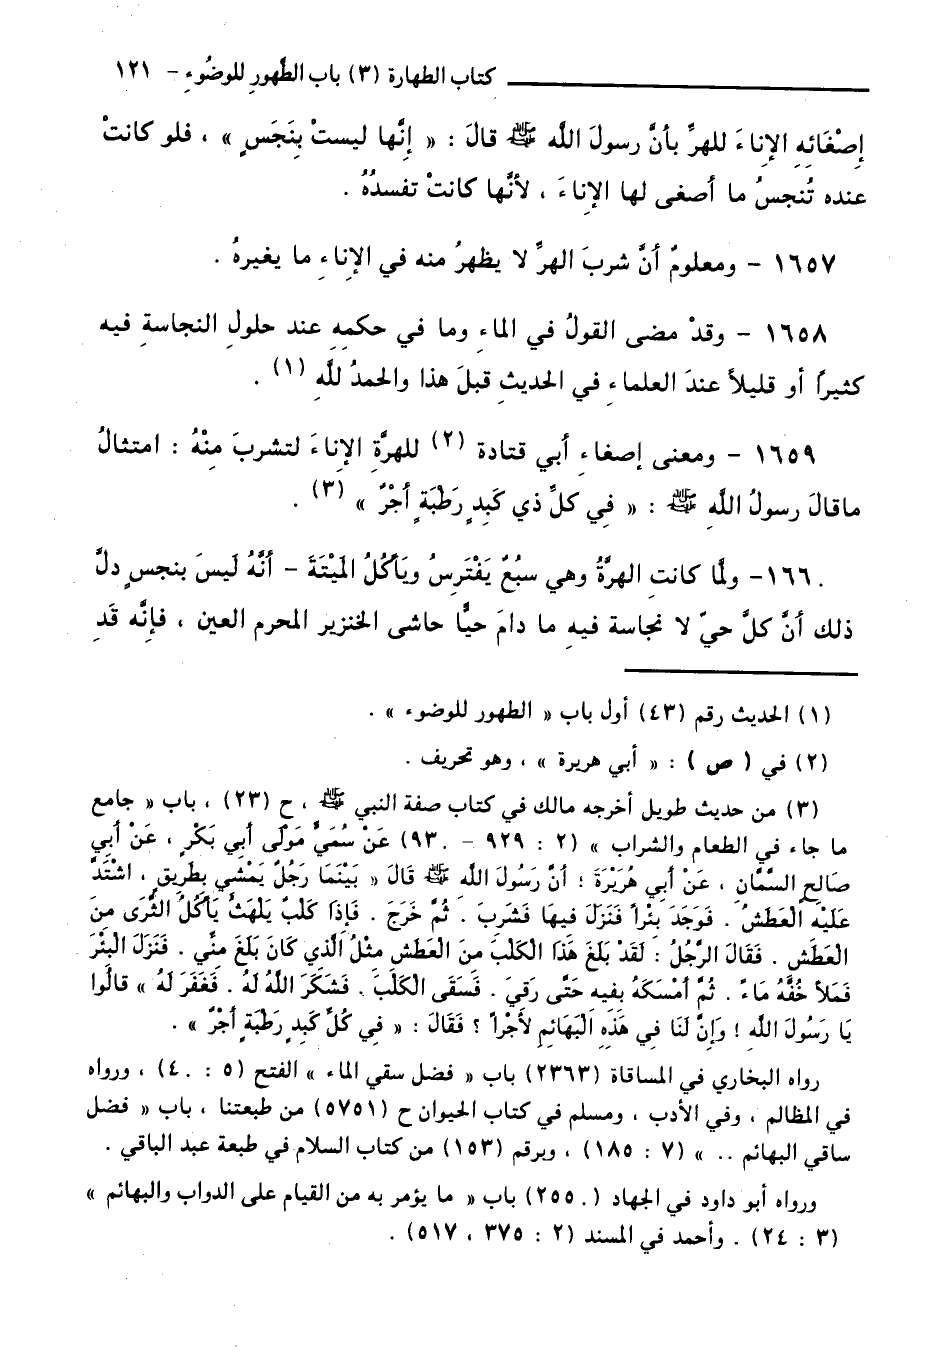 كتاب الطهارة (٣) باب الطَّهورِ للوضُوءِ - ١٢١
إصْغَائِهِ الإناءَ للهرِّ بأنَّ رسولَ اللَّه ﷺ قالَ : « إنَّها ليستْ بِنَجَسٍ » ، فلو كانتْ
عنده تُنجسُ ما أصغى لها الإناءَ ، لأنَّها كانتْ تفسدُهُ .
١٦٥٧ - ومعلومٌ أنَّ شربَ الهرِّ لا يظهرُ منه في الإناءِ ما يغيرهُ .
١٦٥٨ - وقدْ مضى القولُ في الماءِ وما في حكمِهِ عند حلولِ النجاسةِ فيه
كثيرًا أو قليلاً عندَ العلماءِ في الحديثِ قبلَ هذا والحمدُ للَّهِ (١) .
١٦٥٩ - ومعنى إصغاءِ أبي قتادة (٢) للهرَّةِ الإناءَ لتشربَ مِنْهُ : امتثالُ
ماقالَ رسولُ اللَّهِ ﷺ : « في كلِّ ذي كَبِدٍ رَطْبَةٍ أجْرٌ » (٣) .
١٦٦٠- ولمَّا كانت الهرَّةُ وهي سبُعٌ يَفْتَرِسُ ويَأكُلُ المَيْتَةَ - أنَّهُ لَيسَ بنجسٍ دلَّ
ذلك أنَّ كلَّ حيٍّ لا نجاسة فيهِ ما دامَ حيًّا حاشى الخنزير المحرم العين ، فإنَّه قَدِ
(١) الحديث رقم (٤٣) أول باب « الطهور للوضوء » .
(٢) في ( ص ) : « أبي هريرة » ، وهو تحريف .
(٣) من حديث طويل أخرجه مالك في كتاب صفة النبي ﷺ ، ح (٢٣) ، باب « جامع
ما جاء في الطعام والشراب » (٢ : ٩٢٩ - ٩٣٠) عَنْ سُمَيٍّ مَوْلَى أبي بَكْرٍ ، عَنْ أبي
صَالِحٍ السَّمَّانِ ، عَنْ أبي هُرَيْرَةَ ؛ أنَّ رَسُولَ اللَّهِ ﷺ قَالَ « بَيْنَمَا رَجُلٌ يَمْشي بِطَرِيقٍ ، اشْتَدَّ
عَلَيْهِ الْعَطَشُ . فَوَجَدَ بِئْراً فَنَزَلَ فيهَا فَشَرِبَ . ثُمَّ خَرَجَ . فَإِذَا كَلْبٌ يَلْهَثُ يَأكُلُ الثَّرَى مِنَ
الْعَطَشِ . فَقَالَ الرَّجُلُ : لَقَدْ بَلَغَ هَذَا الْكَلْبَ مِنَ الْعَطَشِ مثْلُ الَّذي كَانَ بَلَغَ منِّي . فَنَزَلَ الْبِئْرَ
فَمَلأ خُفَّهُ مَاءً . ثُمَّ أمْسَكَهُ بِفيه حَتَّى رَقِيَ . فَسَقَى الْكَلْبَ . فَشَكَرَ اللَّهُ لَهُ . فَغَفَرَ لَهُ » قالُوا
يَا رَسُولَ اللَّهِ ! وَإنَّ لَنَا في هَذِه الْبَهَائِمِ لأجْراً ؟ فَقَالَ : « في كُلِّ كَبِدٍ رَطْبَةٍ أجْرٌ » .
رواه البخاري في المساقاة (٢٣٦٣) باب « فضل سقي الماء » الفتح (٥ : ٤٠) ، ورواه
في المظالم ، وفي الأدب ، ومسلم في كتاب الحيوان ح (٥٧٥١) من طبعتنا ، باب « فضل
ساقي البهائم .. » (٧ : ١٨٥) ، وبرقم (١٥٣) من كتاب السلام في طبعة عبد الباقي .
ورواه أبو داود في الجهاد (٢٥٥٠) باب « ما يؤمر به من القيام على الدواب والبهائم »
(٣ : ٢٤) . وأحمد في المسند (٢ : ٣٧٥ ، ٥١٧) .